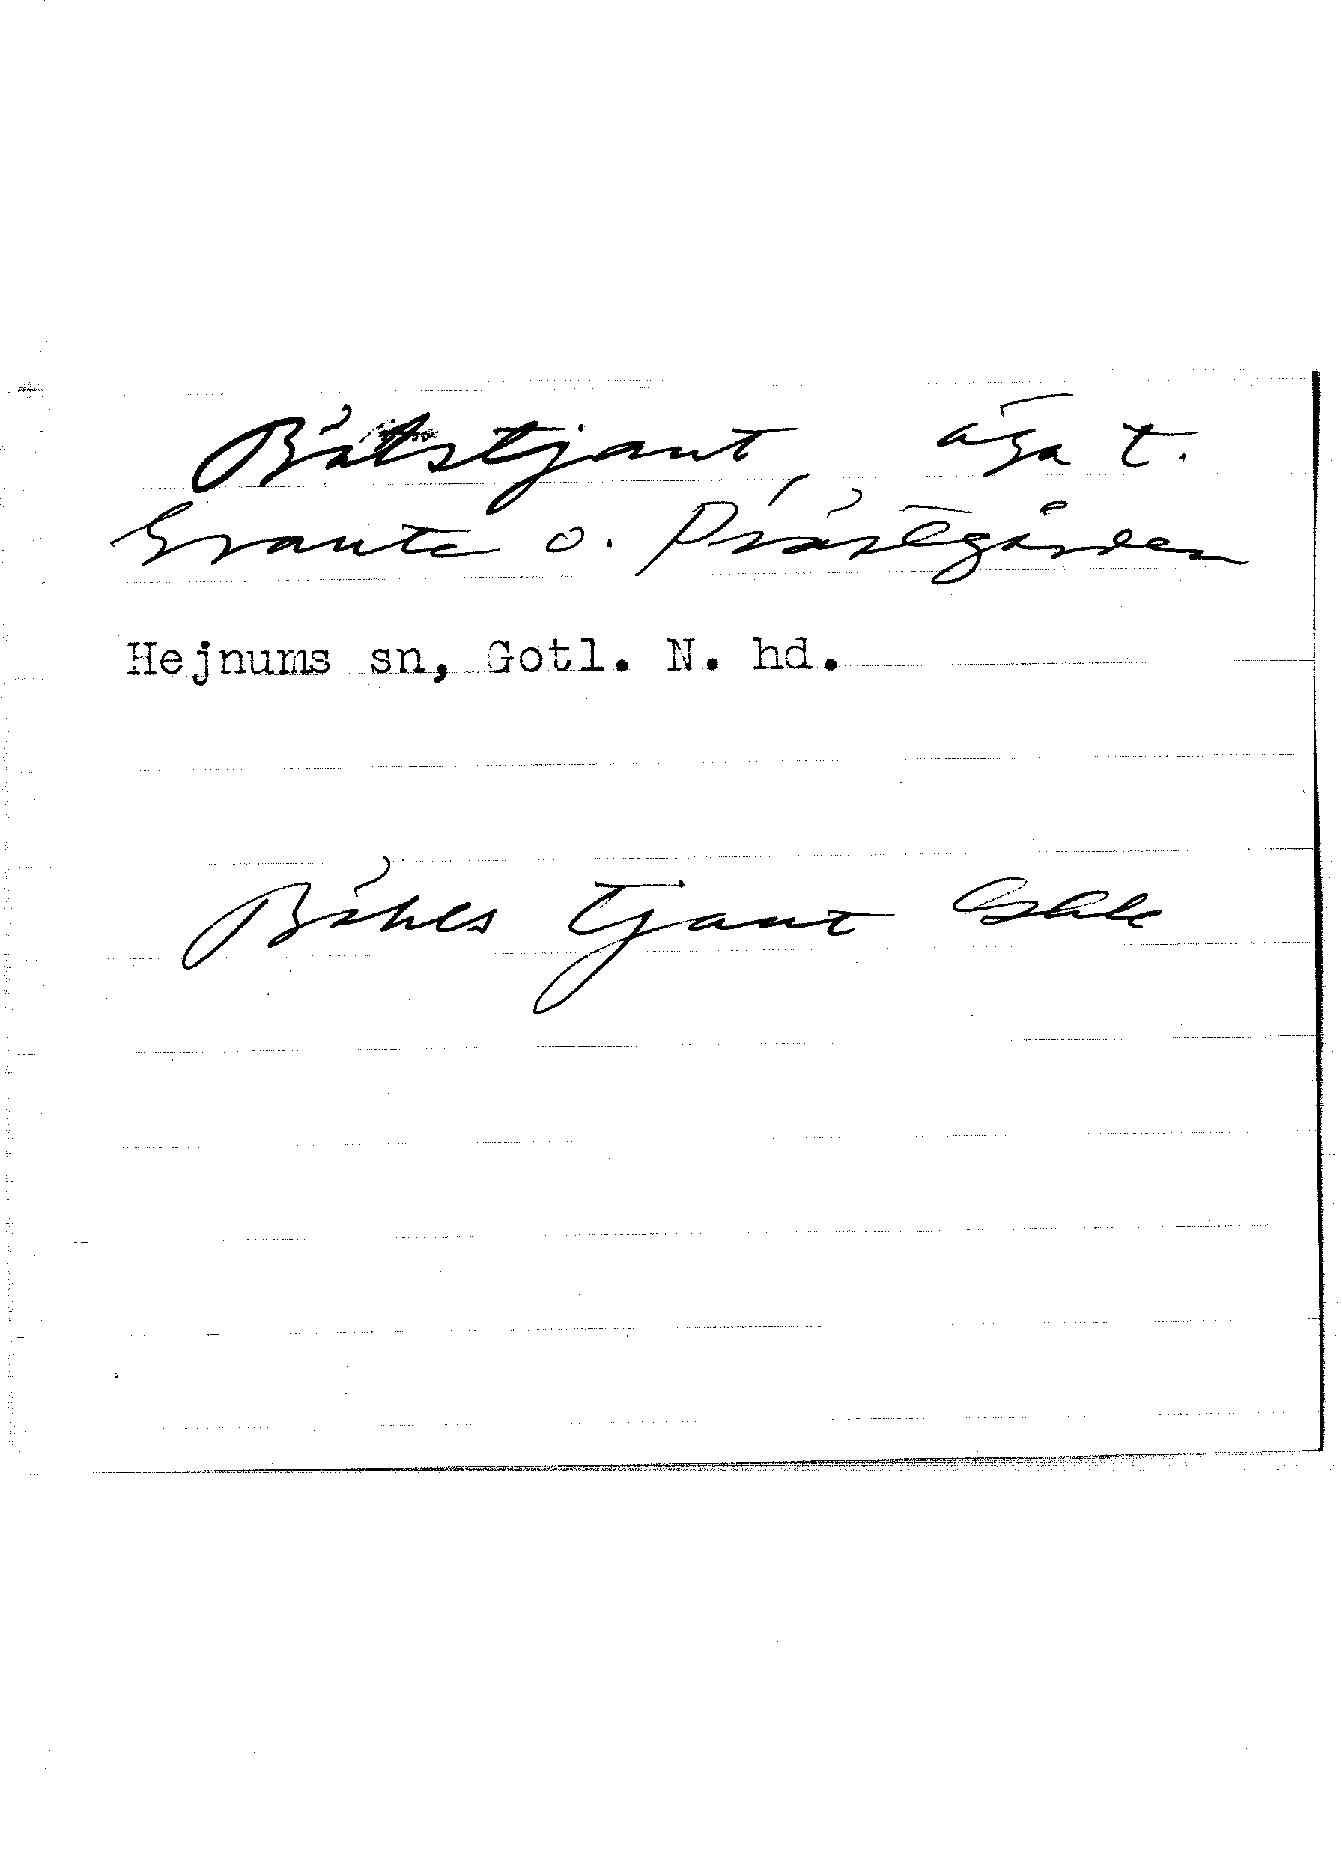 Båtstjaut, äga t.
Graute o. Prästgården
Hejnums sn, Gotl. N. hd.
Båhls Tjaut